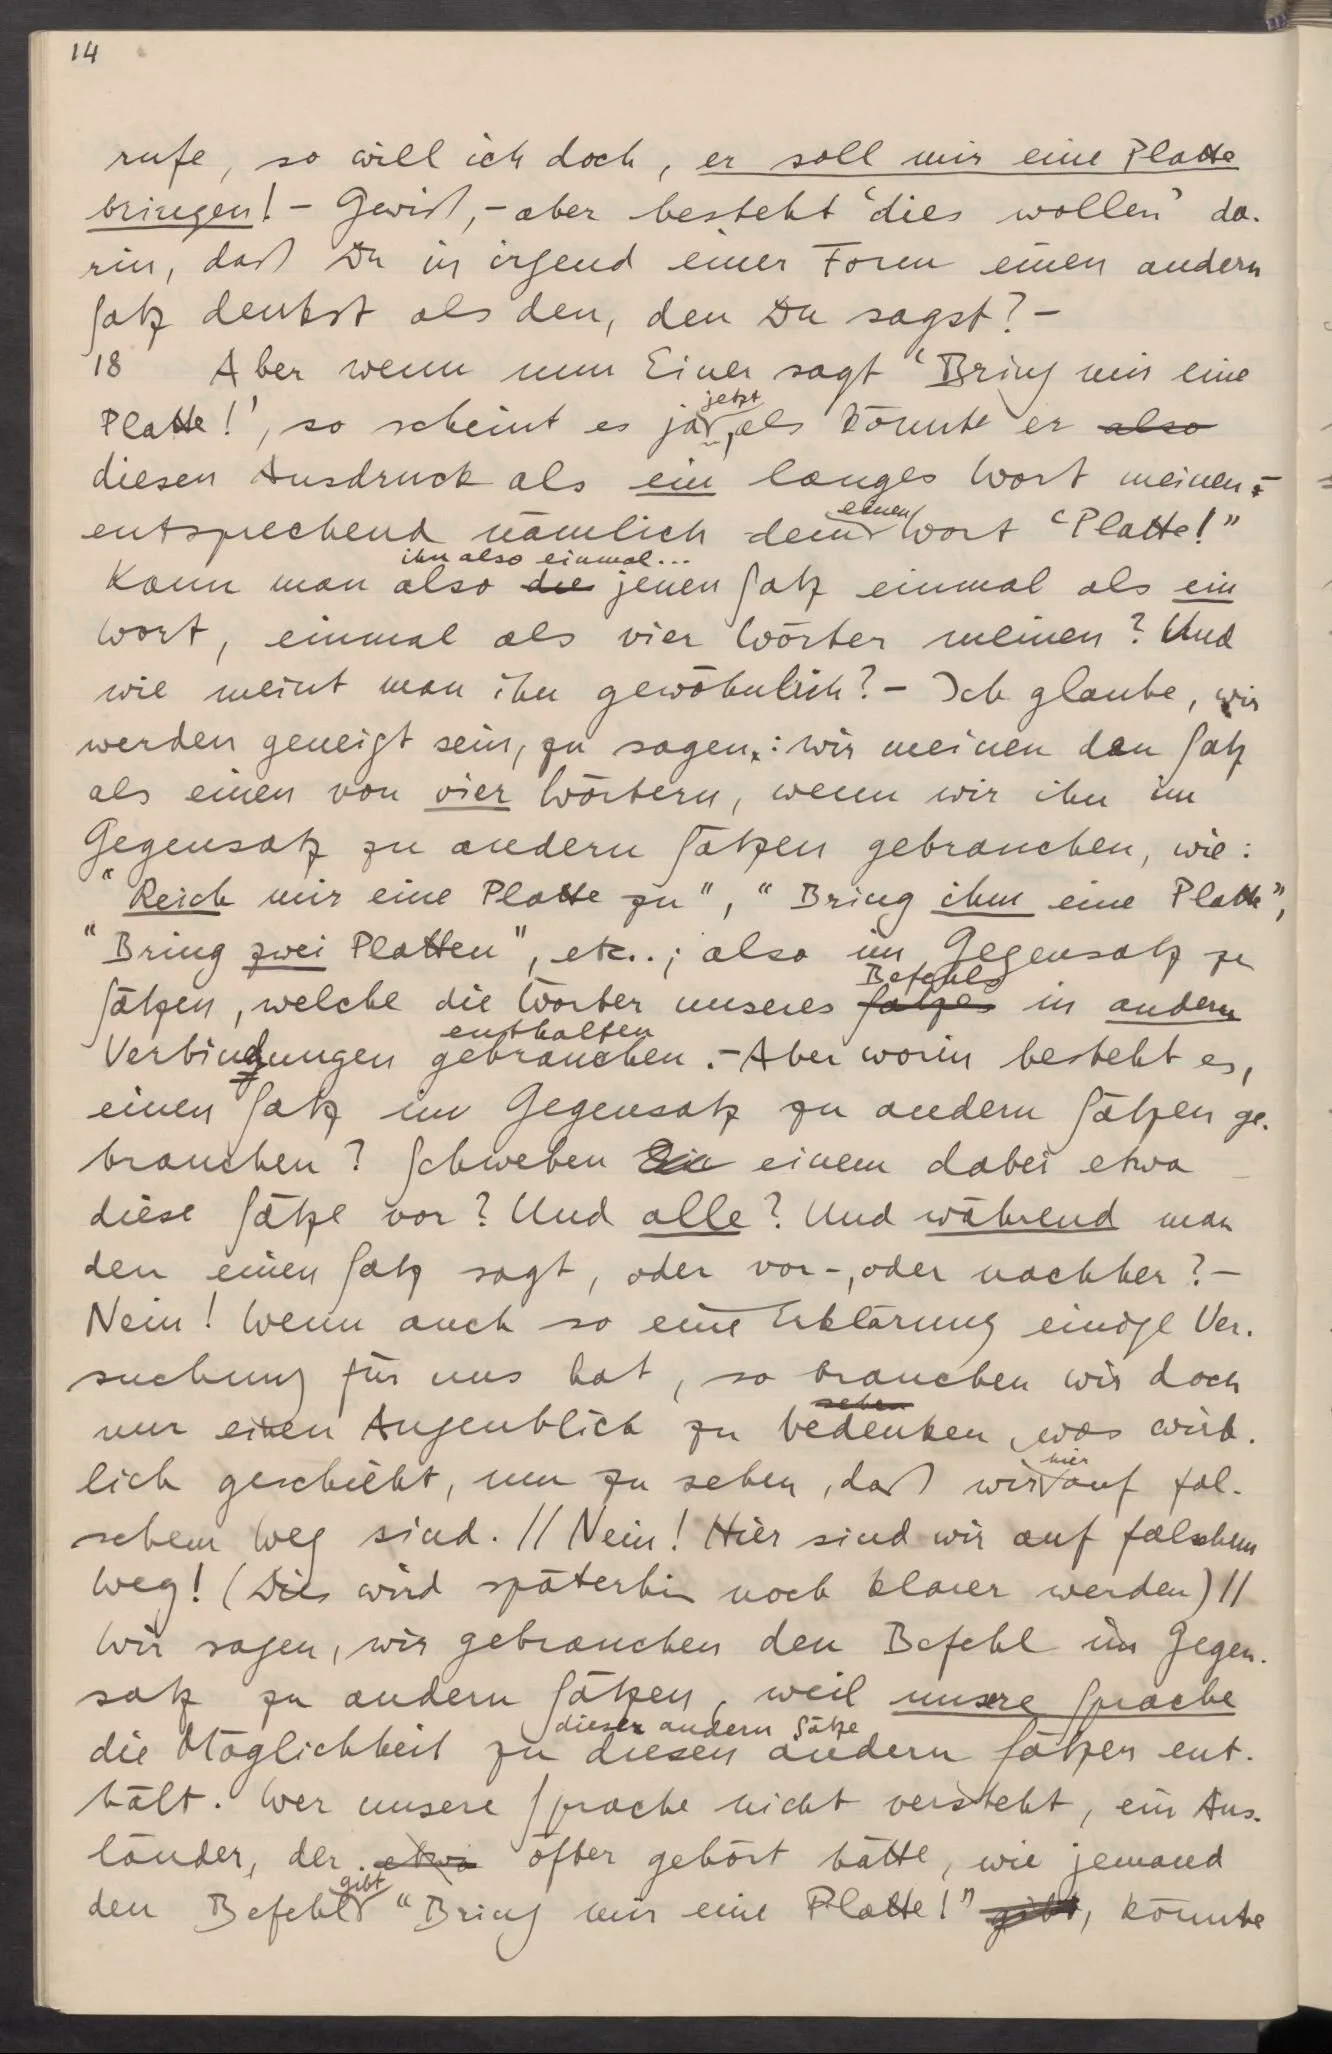 14
rufe, so will ich doch, er soll mir eine Platte
bringen! – Gewiß, – aber besteht ‘dies wollen’ da-
rin, daß Du in irgend einer Form einen andern
Satz denkst als den, den Du sagst? –
18 Aber wenn nun Einer sagt ‘Bring mir eine
jetzt
Platte!’, so scheint es ja, als könnte er also
diesen Ausdruck als ein langes Wort meinen: –
einen
entsprechend nämlich dem Wort “Platte!”
ihn also einmal...
Kann man also die jenen Satz einmal als ein
Wort, einmal als vier Wörter meinen? Und
wie meint man ihn gewöhnlich? – Ich glaube, wir
werden geneigt sein, zu sagen: wir meinen den Satz
als einen von vier Wörtern, wenn wir ihn im
Gegensatz zu andern Sätzen gebrauchen, wie:
“Reich mir eine Platte zu”, “Bring ihm eine Platte”,
“Bring zwei Platten”, etc..; also im Gegensatz zu
Befehls
Sätzen, welche die Wörter unseres Satzes in andern
enthalten
Verbindungen gebrauchen. – Aber worin besteht es,
einen Satz im Gegensatz zu andern Sätzen ge-
brauchen? Schweben einem dabei etwa
diese Sätze vor? Und alle? Und während man
den einen Satz sagt, oder vor-, oder nachher? –
Nein! Wenn auch so eine Erklärung einige Ver-
suchung für uns hat, so brauchen wir doch
sehen
nur einen Augenblick zu bedenken, was wirk-
hier
lich geschieht, um zu sehen, daß wir auf fal-
schem Weg sind. // Nein! Hier sind wir auf falschem
Weg! (Dies wird späterhin noch klarer werden) //
Wir sagen, wir gebrauchen den Befehl im Gegen-
satz zu andern Sätzen, weil unsere Sprache
dieser andern Sätze
die Möglichkeit zu diesen andern Sätzen ent-
hält. Wer unsere Sprache nicht versteht, ein Aus-
länder, der etwa öfter gehört hätte, wie jemand
gibt
den Befehl “Bring mir eine Platte!” gibt, könnte